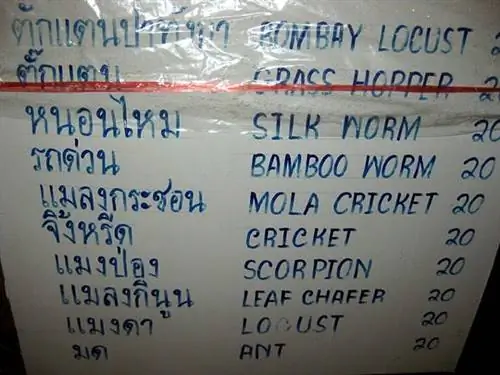 ตั๊กแตนปาทังก้า BOMBAY LOCUST
ตั๊กแตน GRASS HOPPER
หนอนไหม SILK WORM 20
รถด่วน BAMBOO WORM 20
แมลงกระชอน MOLA CRICKET 20
จิ้งหรีด CRICKET 20
แมงป่อง SCORPION 20
แมลงกีนูน LEAF CHAFER 20
แมงดา LOCUST 20
มด ANT 20